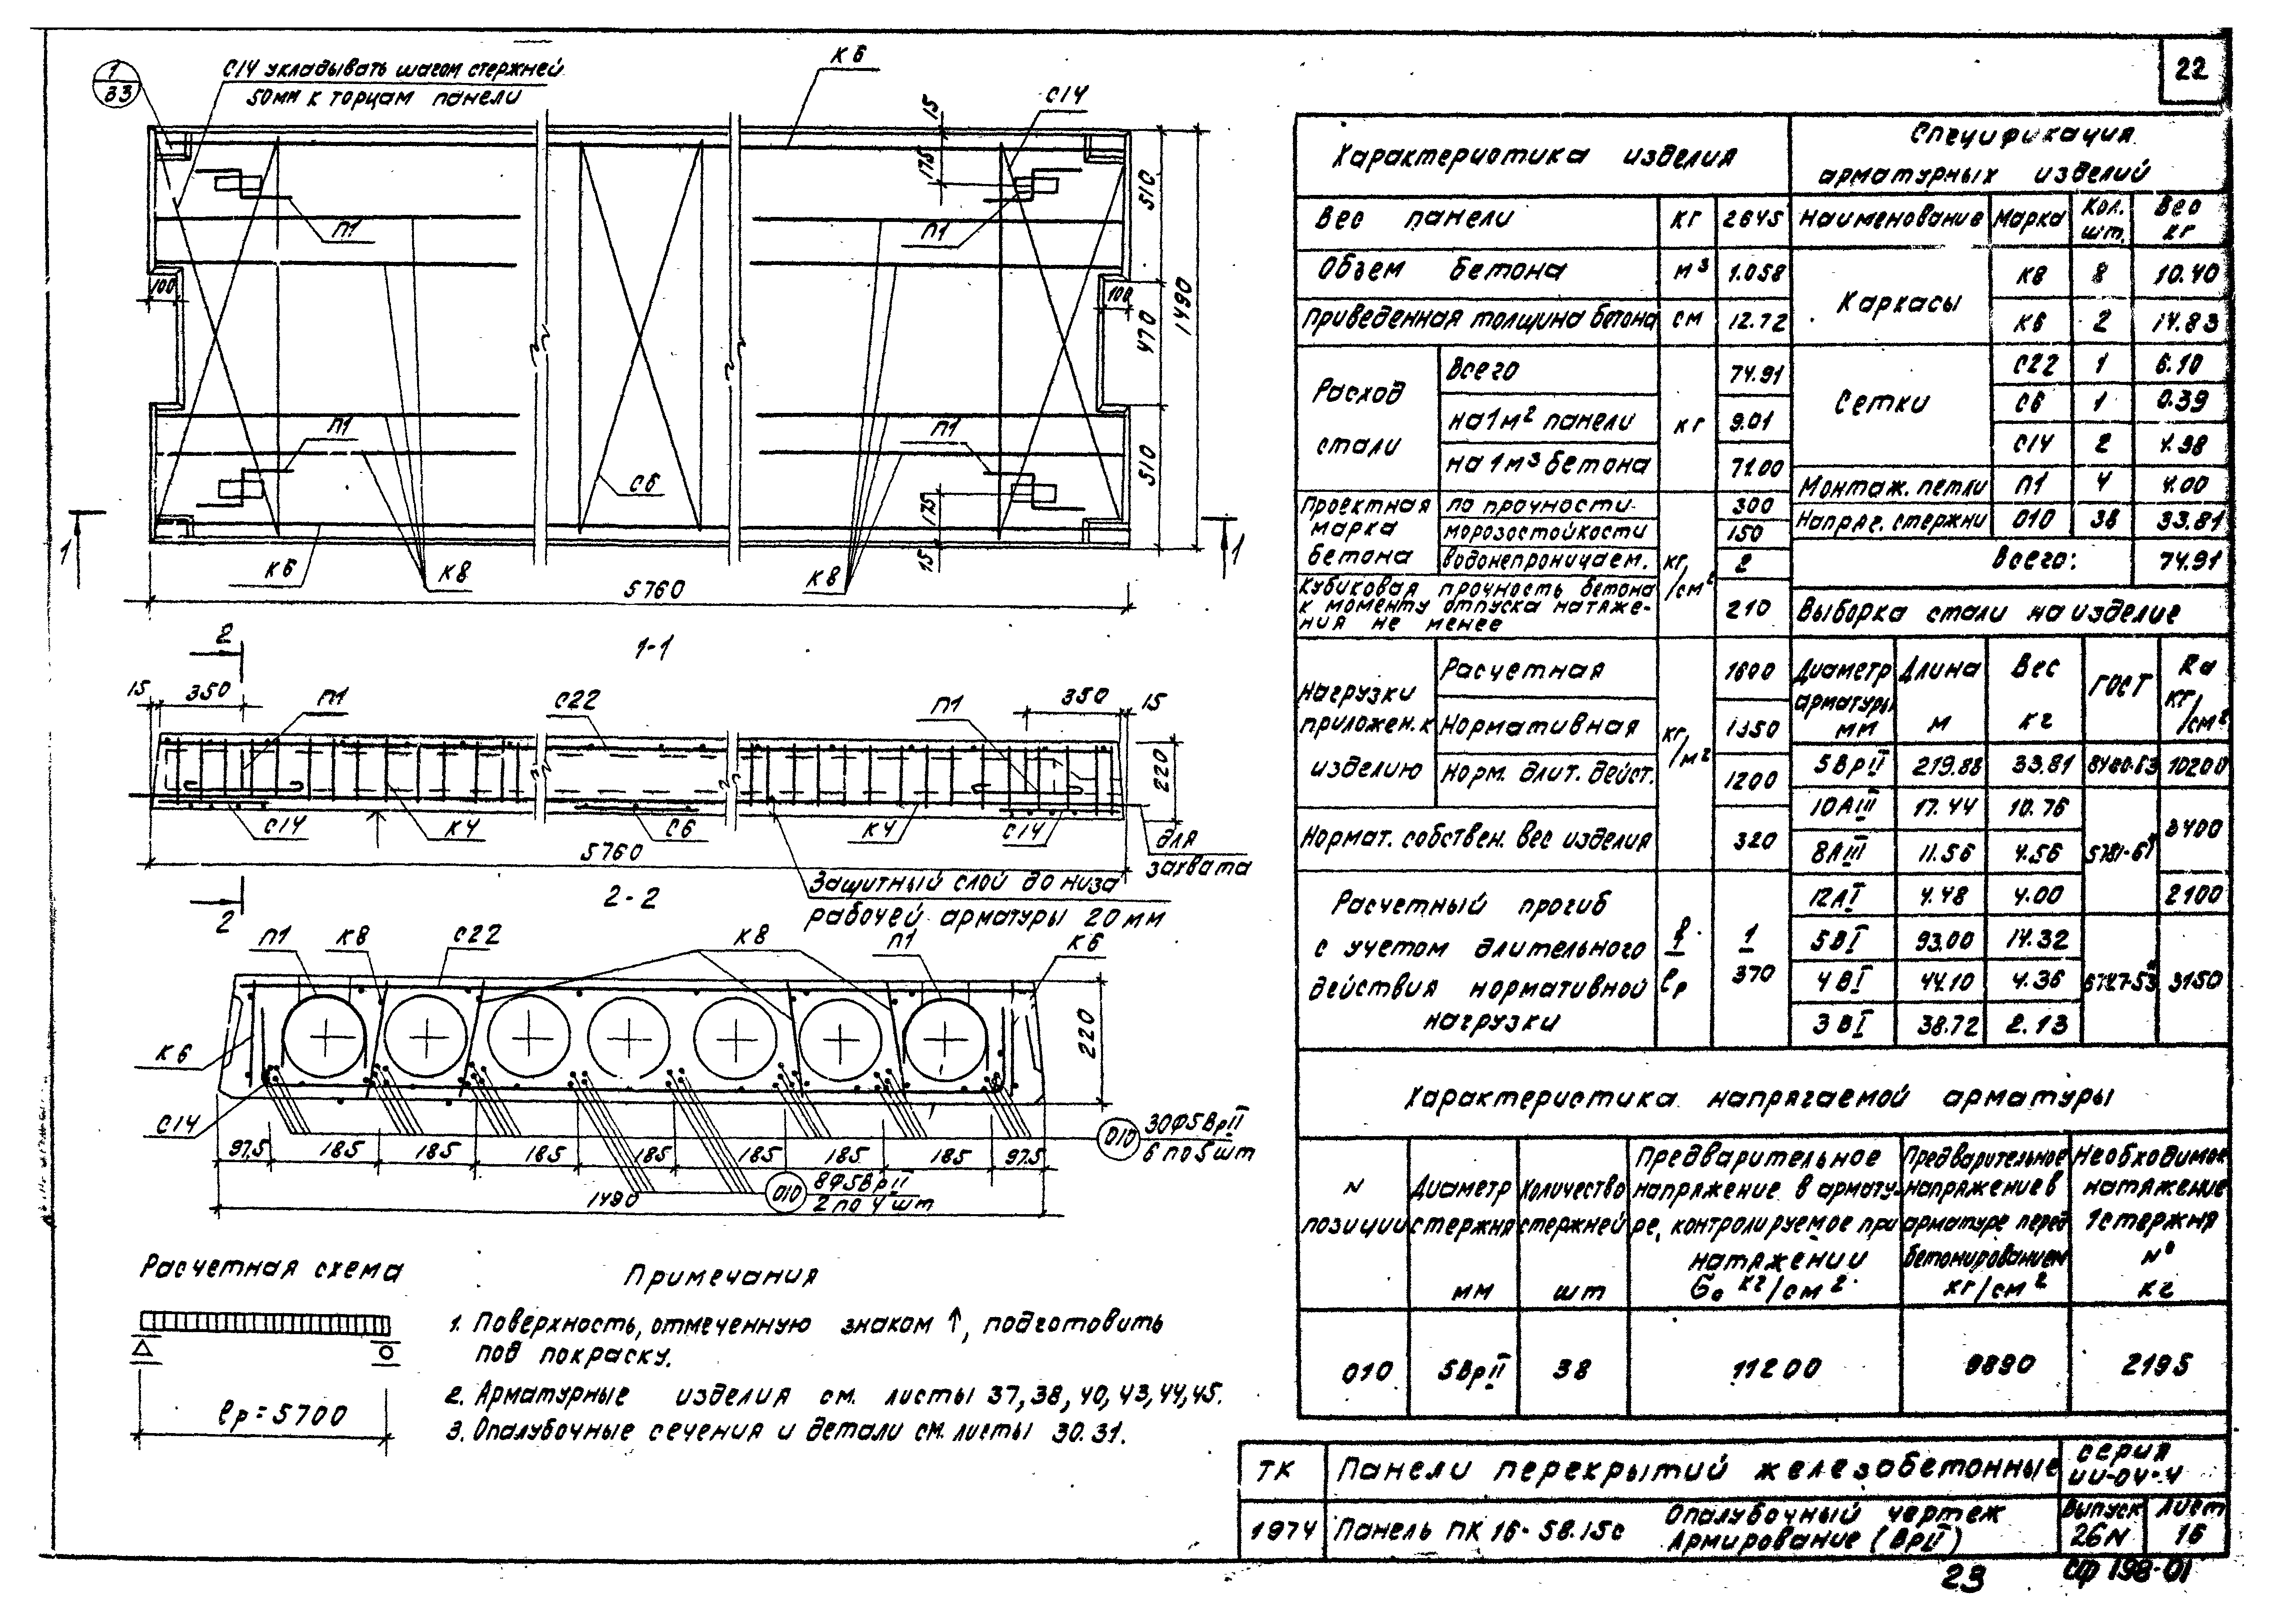 22
1
33
С14 укладывать шагом стержней
50мм к торцам панели
К6
С14
15
175
П1
П1
100
100
510
470
510
1490
П1
П1
С6
175
15
К6
К8
К8
1
1
5760
1-1
2
15
350
П1
С22
П1
350
15
220
С14
К4
С6
К4
С14
для
захвата
5760
Защитный слой до низа
рабочей арматуры 20мм
2
2-2
П1
К8
С22
К8
П1
К6
К6
С14
220
010
30Ф5ВрII
6 по 5шт
97,5
185
185
185
185
185
185
185
97.5
010
8Ф5ВрII
2 по 4 шт
1490
Расчетная схема
ℓр=5700
Примечания
1. Поверхность, отмеченную знаком ↑, подготовить
под покраску.
2. Арматурные изделия см. листы 37,38,40,43,44,45.
3. Опалубочные сечения и детали см. листы 30.31.
Характеристика изделия
Вес панели кг 2645
Объем бетона м³ 1.058
Приведенная толщина бетона см 12.72
Расход стали
Всего кг 74.91
на 1м² панели 9.01
на 1м³ бетона 71.00
Проектная марка бетона
по прочности 300
морозостойкости 150
водонепроницаем. кг/см² 2
Кубиковая прочность бетона
к моменту отпуска натяже-
ния не менее 210
Нагрузки приложен. к изделию
Расчетная 1600
Нормативная кг/м² 1350
Норм. длит. дейст. 1200
Нормат. собствен. вес изделия 320
Расчетный прогиб
с учетом длительного
действия нормативной
нагрузки
f/ℓр 1/370
Спецификация
арматурных изделий
Наименование Марка Кол. шт. Вес кг
Каркасы К8 8 10.40
К6 2 14.83
Сетки С22 1 6.10
С6 1 0.39
С14 2 4.38
Монтаж. петли П1 4 4.00
Напряг. стержни 010 38 33.81
Всего: 74.91
Выборка стали на изделие
Диаметр арматуры мм Длина м Вес кг ГОСТ Rа кг/см²
5ВрII 219.88 33.81 8480-63 10200
10АIII 17.44 10.76 5781-61 3400
8АIII 11.56 4.56
12АI 4.48 4.00 2100
5ВI 93.00 14.32
4ВI 44.10 4.36 6727-53 3150
3ВI 38.72 2.13
Характеристика напрягаемой арматуры
N позиции
Диаметр стержня мм
Количество стержней шт
Предварительное
напряжение в армату-
ре, контролируемое при
натяжении
б₀ кг/см²
Предварительное
напряжение в
арматуре перед
бетонированием
кг/см²
Необходимое
натяжение
1стержня
N⁰
кг
010 5ВрII 38 11200 9890 2195
ТК Панели перекрытий железобетонные серия ИИ-04-4
1974 Панель ПК 16-58.15с Опалубочный чертеж
Армирование (ВрII)
Выпуск 26N
Лист 16
23
СФ 198-01